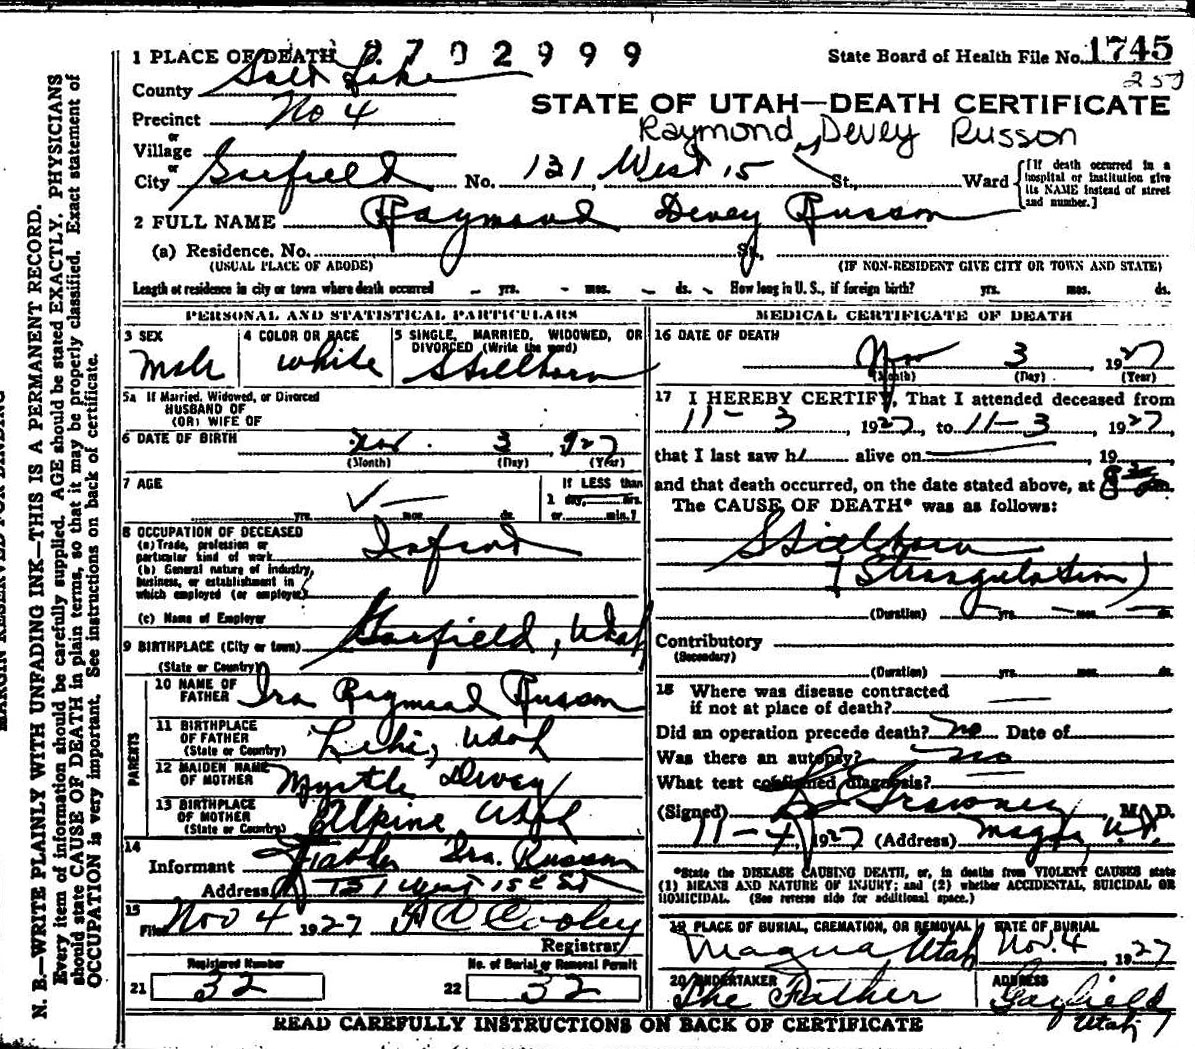 1 PLACE OF DEATH 2702999 State Board of Health File No. 1745
County Salt Lake
STATE OF UTAH—DEATH CERTIFICATE
Precinct No 4
Raymond Devey Russon
or
Village
or
City Garfield No. 131 West 15 St., Ward
[If death occurred in a hospital or institution give its NAME instead of street and number.]
2 FULL NAME Raymond Devey Russon
(a) Residence. No. St.
(USUAL PLACE OF ABODE) (IF NON-RESIDENT GIVE CITY OR TOWN AND STATE)
Length of residence in city or town where death occurred - yrs. - mos. - ds. How long in U. S., if foreign birth? yrs. mos. ds.
PERSONAL AND STATISTICAL PARTICULARS
3 SEX Male
4 COLOR OR RACE white
5 SINGLE, MARRIED, WIDOWED, OR DIVORCED (Write the word) Stillborn
5a If Married, Widowed, or Divorced
HUSBAND OF
(OR) WIFE OF
6 DATE OF BIRTH Nov. 3 1927
(Month) (Day) (Year)
7 AGE yrs. mos. ds.
If LESS than
1 day, hrs.
or min.?
8 OCCUPATION OF DECEASED
(a) Trade, profession or
particular kind of work Infant
(b) General nature of industry,
business, or establishment in
which employed (or employer)
(c) Name of Employer
9 BIRTHPLACE (City or town) Garfield, Utah
(State or Country)
PARENTS
10 NAME OF
FATHER Ira Raymond Russon
11 BIRTHPLACE
OF FATHER
(State or Country) Lehi, Utah
12 MAIDEN NAME
OF MOTHER Myrtle Devey
13 BIRTHPLACE
OF MOTHER
(State or Country) Alpine Utah
14
Informant Father Ira. Russon
Address 131 West 15th St
15
Filed Nov 4 1927
Registrar Cooley
Registered Number
21 32
No. of Burial or Removal Permit
22 32
MEDICAL CERTIFICATE OF DEATH
16 DATE OF DEATH
Nov 3 1927
(Month) (Day) (Year)
17 I HEREBY CERTIFY, That I attended deceased from
11-3, 1927, to 11-3, 1927,
that I last saw h alive on , 19
and that death occurred, on the date stated above, at m.
The CAUSE OF DEATH* was as follows:
Stillborn
(Strangulation)
(Duration) yrs. mos. ds.
Contributory
(Secondary)
(Duration) yrs. mos. ds.
18 Where was disease contracted
if not at place of death?
Did an operation precede death? No Date of
Was there an autopsy? no
What test confirmed diagnosis?
(Signed) M. D.
11-4, 1927 (Address) Magna, Ut.
*State the DISEASE CAUSING DEATH, or, in deaths from VIOLENT CAUSES state
(1) MEANS AND NATURE OF INJURY; and (2) whether ACCIDENTAL, SUICIDAL OR
HOMICIDAL. (See reverse side for additional space.)
19 PLACE OF BURIAL, CREMATION, OR REMOVAL DATE OF BURIAL
Magna Utah Nov. 4 1927
20 UNDERTAKER ADDRESS
The Father Garfield
Utah
READ CAREFULLY INSTRUCTIONS ON BACK OF CERTIFICATE
MARGIN RESERVED FOR BINDING
N. B.—WRITE PLAINLY WITH UNFADING INK—THIS IS A PERMANENT RECORD.
Every item of information should be carefully supplied. AGE should be stated EXACTLY. PHYSICIANS
should state CAUSE OF DEATH in plain terms, so that it may be properly classified. Exact statement of
OCCUPATION is very important. See instructions on back of certificate.